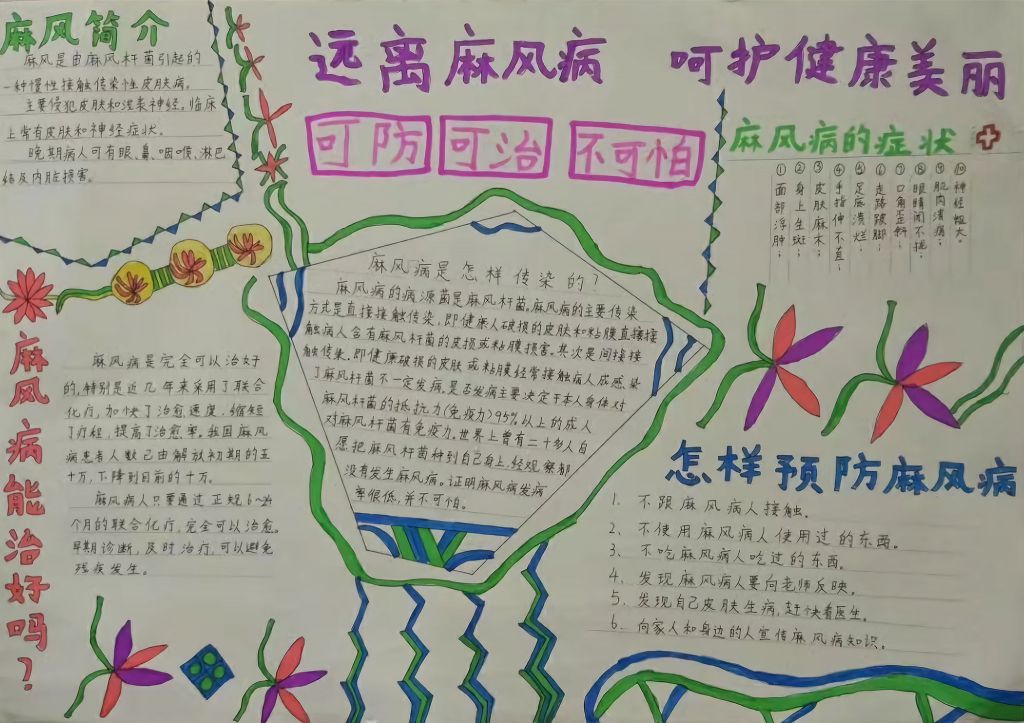 麻风简介
麻风是由麻风杆菌引起的
一种慢性接触传染性皮肤病。
主要侵犯皮肤和周围神经。临床
上常有皮肤和神经症状。
晚期病人可有眼、鼻、咽喉、淋巴
结及内脏损害。
远离麻风病 呵护健康美丽
可防 可治 不可怕
麻风病的症状
①面部浮肿;
②身上生斑;
③皮肤麻木;
④手指伸不直;
⑤足底溃烂;
⑥走路跛脚;
⑦口角歪斜;
⑧眼睛闭不拢;
⑨肌肉溃疡;
⑩神经粗大。
麻风病是怎样传染的?
麻风病的病源菌是麻风杆菌。麻风病的主要传染
方式是直接接触传染,即健康人破损的皮肤和粘膜直接接
触病人含有麻风杆菌的皮损或粘膜损害。其次是间接接
触传染,即健康破损的皮肤或粘膜经常接触病人成感染
了麻风杆菌不一定发病。是否发病主要决定于本人身体对
麻风杆菌的抵抗力(免疫力)95%以上的成人
对麻风杆菌有免疫力。世界上曾有二十多人自
愿把麻风杆菌种到自己身上,经观察都
没有发生麻风病。证明麻风病发病
率很低,并不可怕。
麻风病能治好吗?
麻风病是完全可以治好
的,特别是近几年来采用了联合
化疗,加快了治愈速度,缩短
了疗程,提高了治愈率。我国麻风
病患者人数已由解放初期的五
十万,下降到目前的十万。
麻风病人只要通过正规6~24
个月的联合化疗,完全可以治愈。
早期诊断,及时治疗,可以避免
残疾发生。
怎样预防麻风病
1. 不跟麻风病人接触。
2、不使用麻风病人使用过的东西。
3、不吃麻风病人吃过的东西。
4、发现麻风病人要向老师反映。
5、发现自己皮肤生病,赶快看医生。
6、向家人和身边的人宣传麻风病知识。